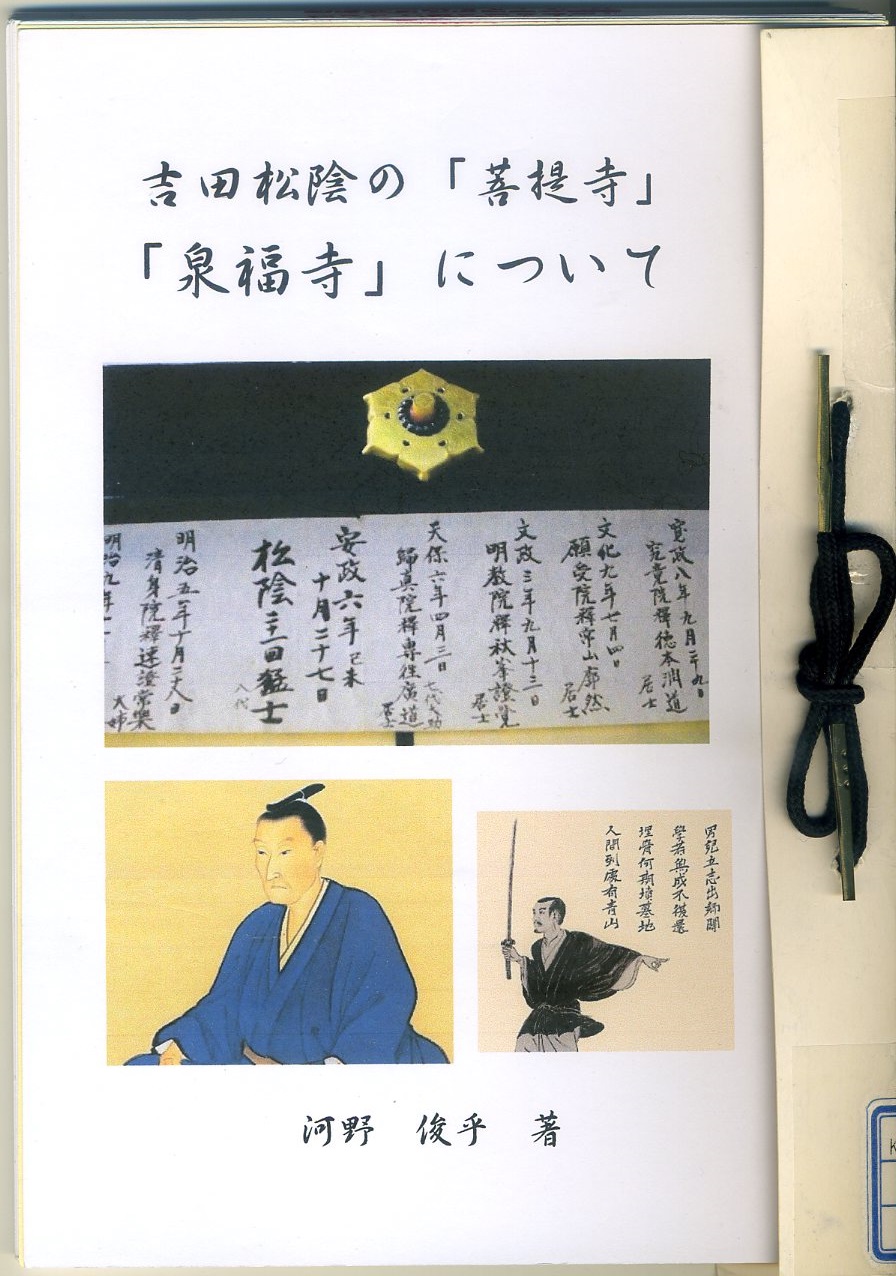 吉田松陰の「菩提寺」
「泉福寺」について
寛政八年九月二九日
究竟院釋徳本潤道
居士
文化九年七月四日
願受院釋常山廓然
居士
文政三年九月十三日
明教院釋秋峯證覚
居士
天保六年四月三日
歸真院釋専往廣道
居士
安政六年己未
十月二十七日
松陰二十一回猛士
八代
明治五年十月二八日
清身院釋蓮證常樂
大姉
明治九年
男兒立志出郷關
學若無成不復還
埋骨何期墳墓地
人間到處有青山
河野 俊乎 著
K